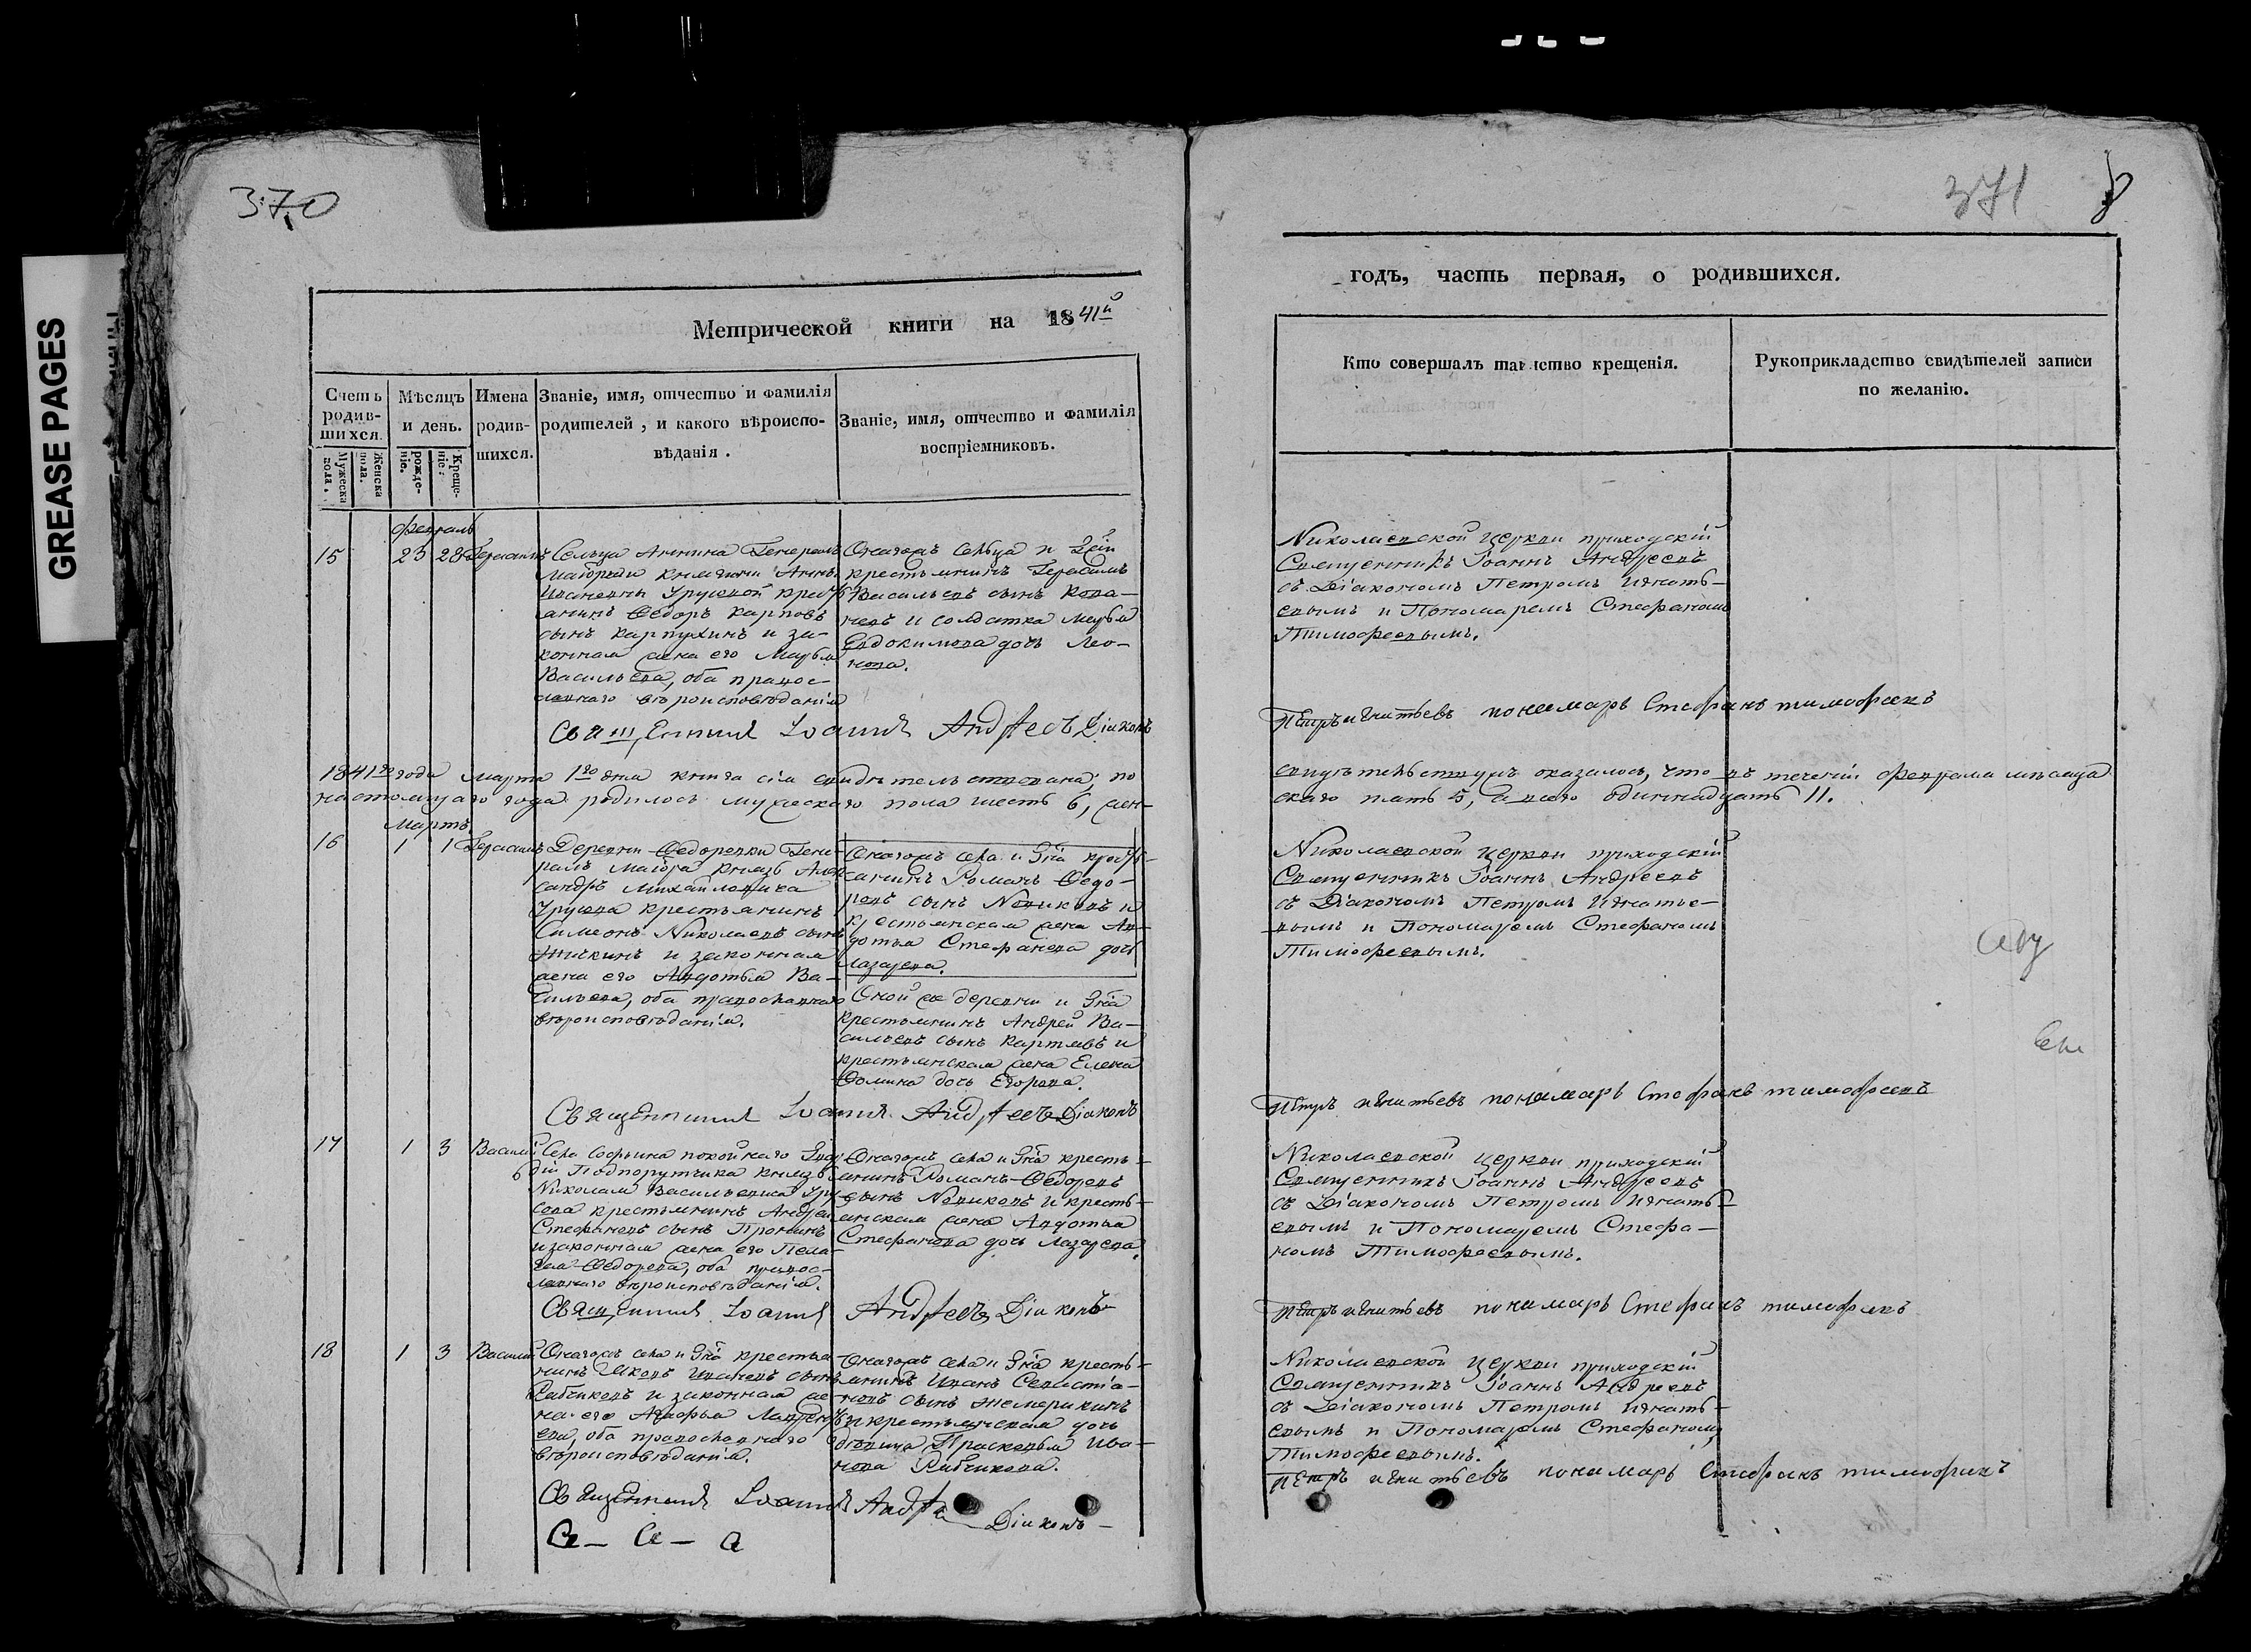 GREASE PAGES
370
Метрической книги на 1841й
Счетъ родив-шихся.
Мужеска пола.
Женска пола.
Мѣсяцъ и день.
рожде-ніе.
Креще-ніе.
Имена родив-шихся.
Званіе, имя, отчество и фамилія
родителей, и какого вѣроиспо-
вѣданія.
Званіе, имя, отчество и фамилія
воспріемниковъ.
февраль
15 23 28 Герасимъ
Сельца Аннина Генералъ
Маіорши княгини Анны
Ивановны Урусовой крест
анинъ Ѳедоръ Карповъ
сынъ Карпухинъ и за-
конная жена его Марья
Васильева, оба правос-
лавнаго вѣроисповѣданія
Онагожъ сельца и
крестьянинъ Герасимъ
Васильевъ сынъ
и солдатка Марья
Евдокимова дочь Лео-
нова.
Священникъ Іоаннъ Андреевъ Діаконъ
1841го года марта 1го дня книга сія свидѣтельствована; по
настоящаго года родилось мужескаго пола шесть 6, жен-
Мартъ
16 1 1 Герасимъ
Деревни Ѳедоровки Гене-
ралъ Маіора князь Алек
сандръ Михайловича
Урусова крестьянинъ
Симеонъ Николаевъ сынъ
и законная
жена его Авдотья Ва-
сильева, оба православнаго
вѣроисповѣданія.
Онагожъ села и Гна кресть-
анинъ Романъ Ѳедо-
ровъ сынъ Новиковъ и
крестьянская жена Ав-
дотья Стефанова дочь
Лазарева.
Оной же деревни и Гна
крестьянинъ Андрей Ва-
сильевъ сынъ и
крестьянская жена Елена
Ѳомина дочь Егорова.
Священникъ Іоаннъ Андреевъ Діаконъ
17 1 3 Василій
Села Софьина покойнаго
Подпорутчика князь
Николая Васильевича Уру
сова крестьянинъ Андрей
Стефановъ сынъ Пронинъ
и законная жена его Пела-
гея Ѳедорова, оба правос-
лавнаго вѣроисповѣданія.
Онагожъ села и Гна кресть-
янинъ Романъ Ѳедоровъ
сынъ Новиковъ и кресть-
янская жена Авдотья
Стефанова дочь Лазарева.
Священникъ Іоаннъ Андреевъ Діаконъ
18 1 3 Василій
Онагожъ села и Гна крестья
нинъ Яковъ Ивановъ сынъ
Рябчиковъ и законная же-
на его Агафья Лаврентъ
ева, оба православнаго
вѣроисповѣданія.
Онагожъ села и Гна кресть-
янинъ Иванъ Севастіа-
новъ сынъ Жемерикинъ
и крестьянская дочь
дѣвица Прасковья Ива-
нова Рябчикова.
Священникъ Іоаннъ Діаконъ
371
8
годъ, часть первая, о родившихся.
Кто совершалъ таинство крещенія.
Рукоприкладство свидѣтелей записи
по желанію.
Николаевской церкви приходскій
Священникъ Іоаннъ Андреевъ
съ Діакономъ Петромъ Игнать-
евымъ и Пономаремъ Стефаномъ
Тимофеевымъ.
Петръ игнатьевъ пономарь Стефанъ тимофеевъ
свидѣтельствуя оказалось, что въ теченіи февраля мѣсяца
скаго пять 5, а всего одиннадцать 11.
Николаевской церкви приходскій
Священникъ Іоаннъ Андреевъ
съ Діакономъ Петромъ Игнатье-
вымъ и Пономаремъ Стефаномъ
Тимофеевымъ.
Петръ игнатьевъ пономарь Стефанъ тимофеевъ
Николаевской церкви приходскій
Священникъ Іоаннъ Андреевъ
съ Діакономъ Петромъ Игнать-
евымъ и Пономаремъ Стефа-
номъ Тимофеевымъ.
Петръ игнатьевъ пономарь Стефанъ тимофеевъ
Николаевской церкви приходскій
Священникъ Іоаннъ Андреевъ
съ Діакономъ Петромъ Игнать-
евымъ и Пономаремъ Стефаномъ
Тимофеевымъ.
Петръ игнатьевъ понамарь Стефанъ тимофеевъ